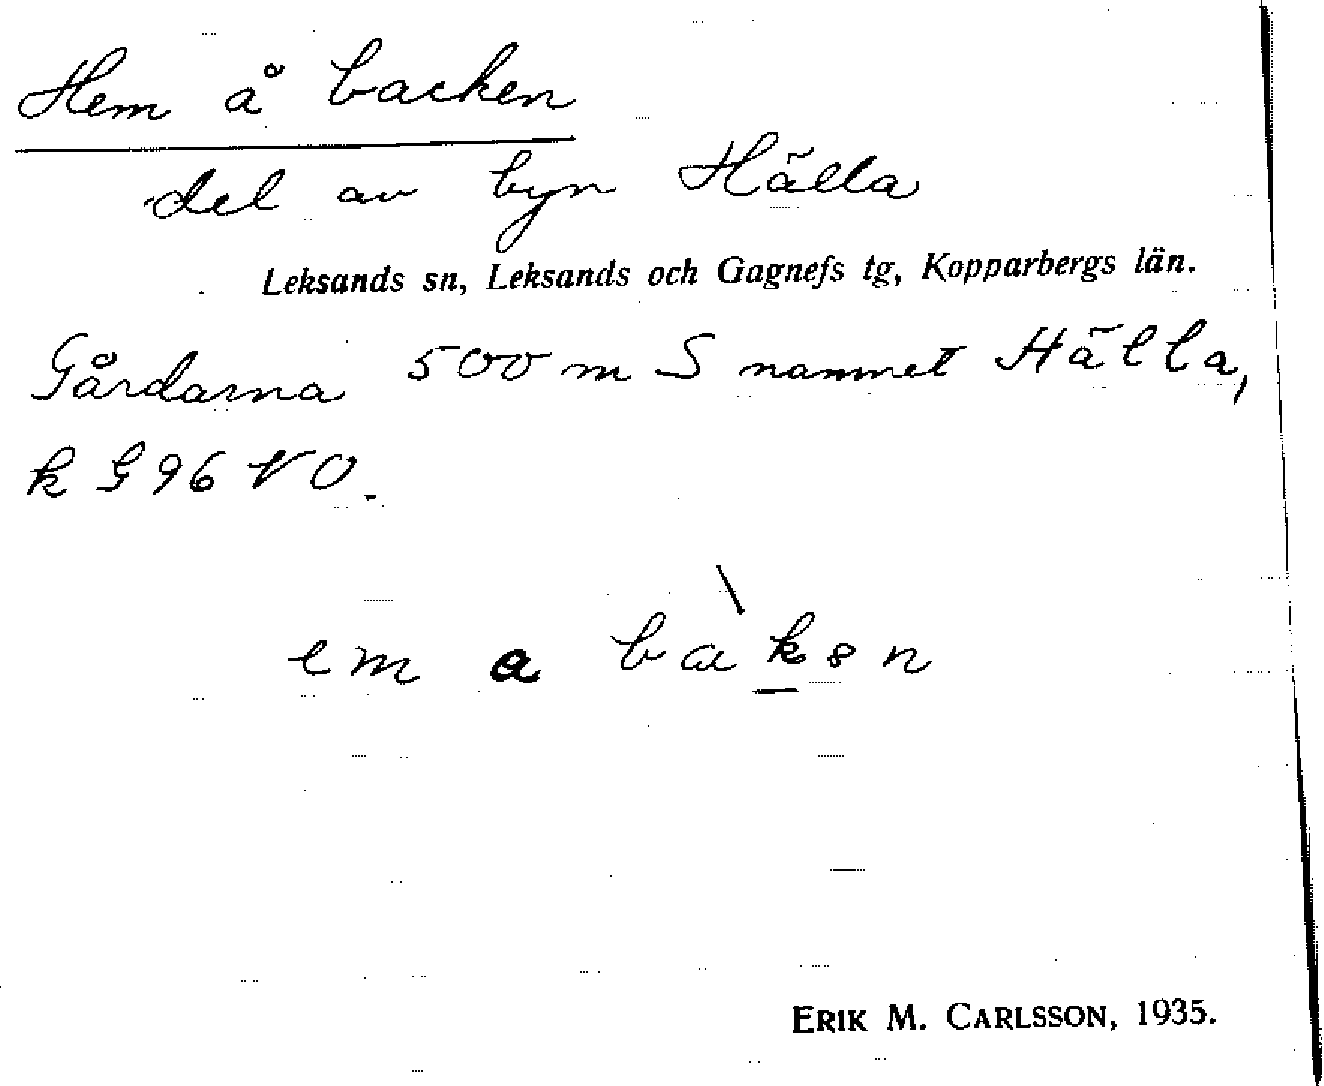 Hem å backen
del av byn Hälla
Leksands sn, Leksands och Gagnefs tg, Kopparbergs län.
Gårdarna 500 m S namnet Hälla,
k G 96 NO.
em a
ERIK M. CARLSSON, 1935.